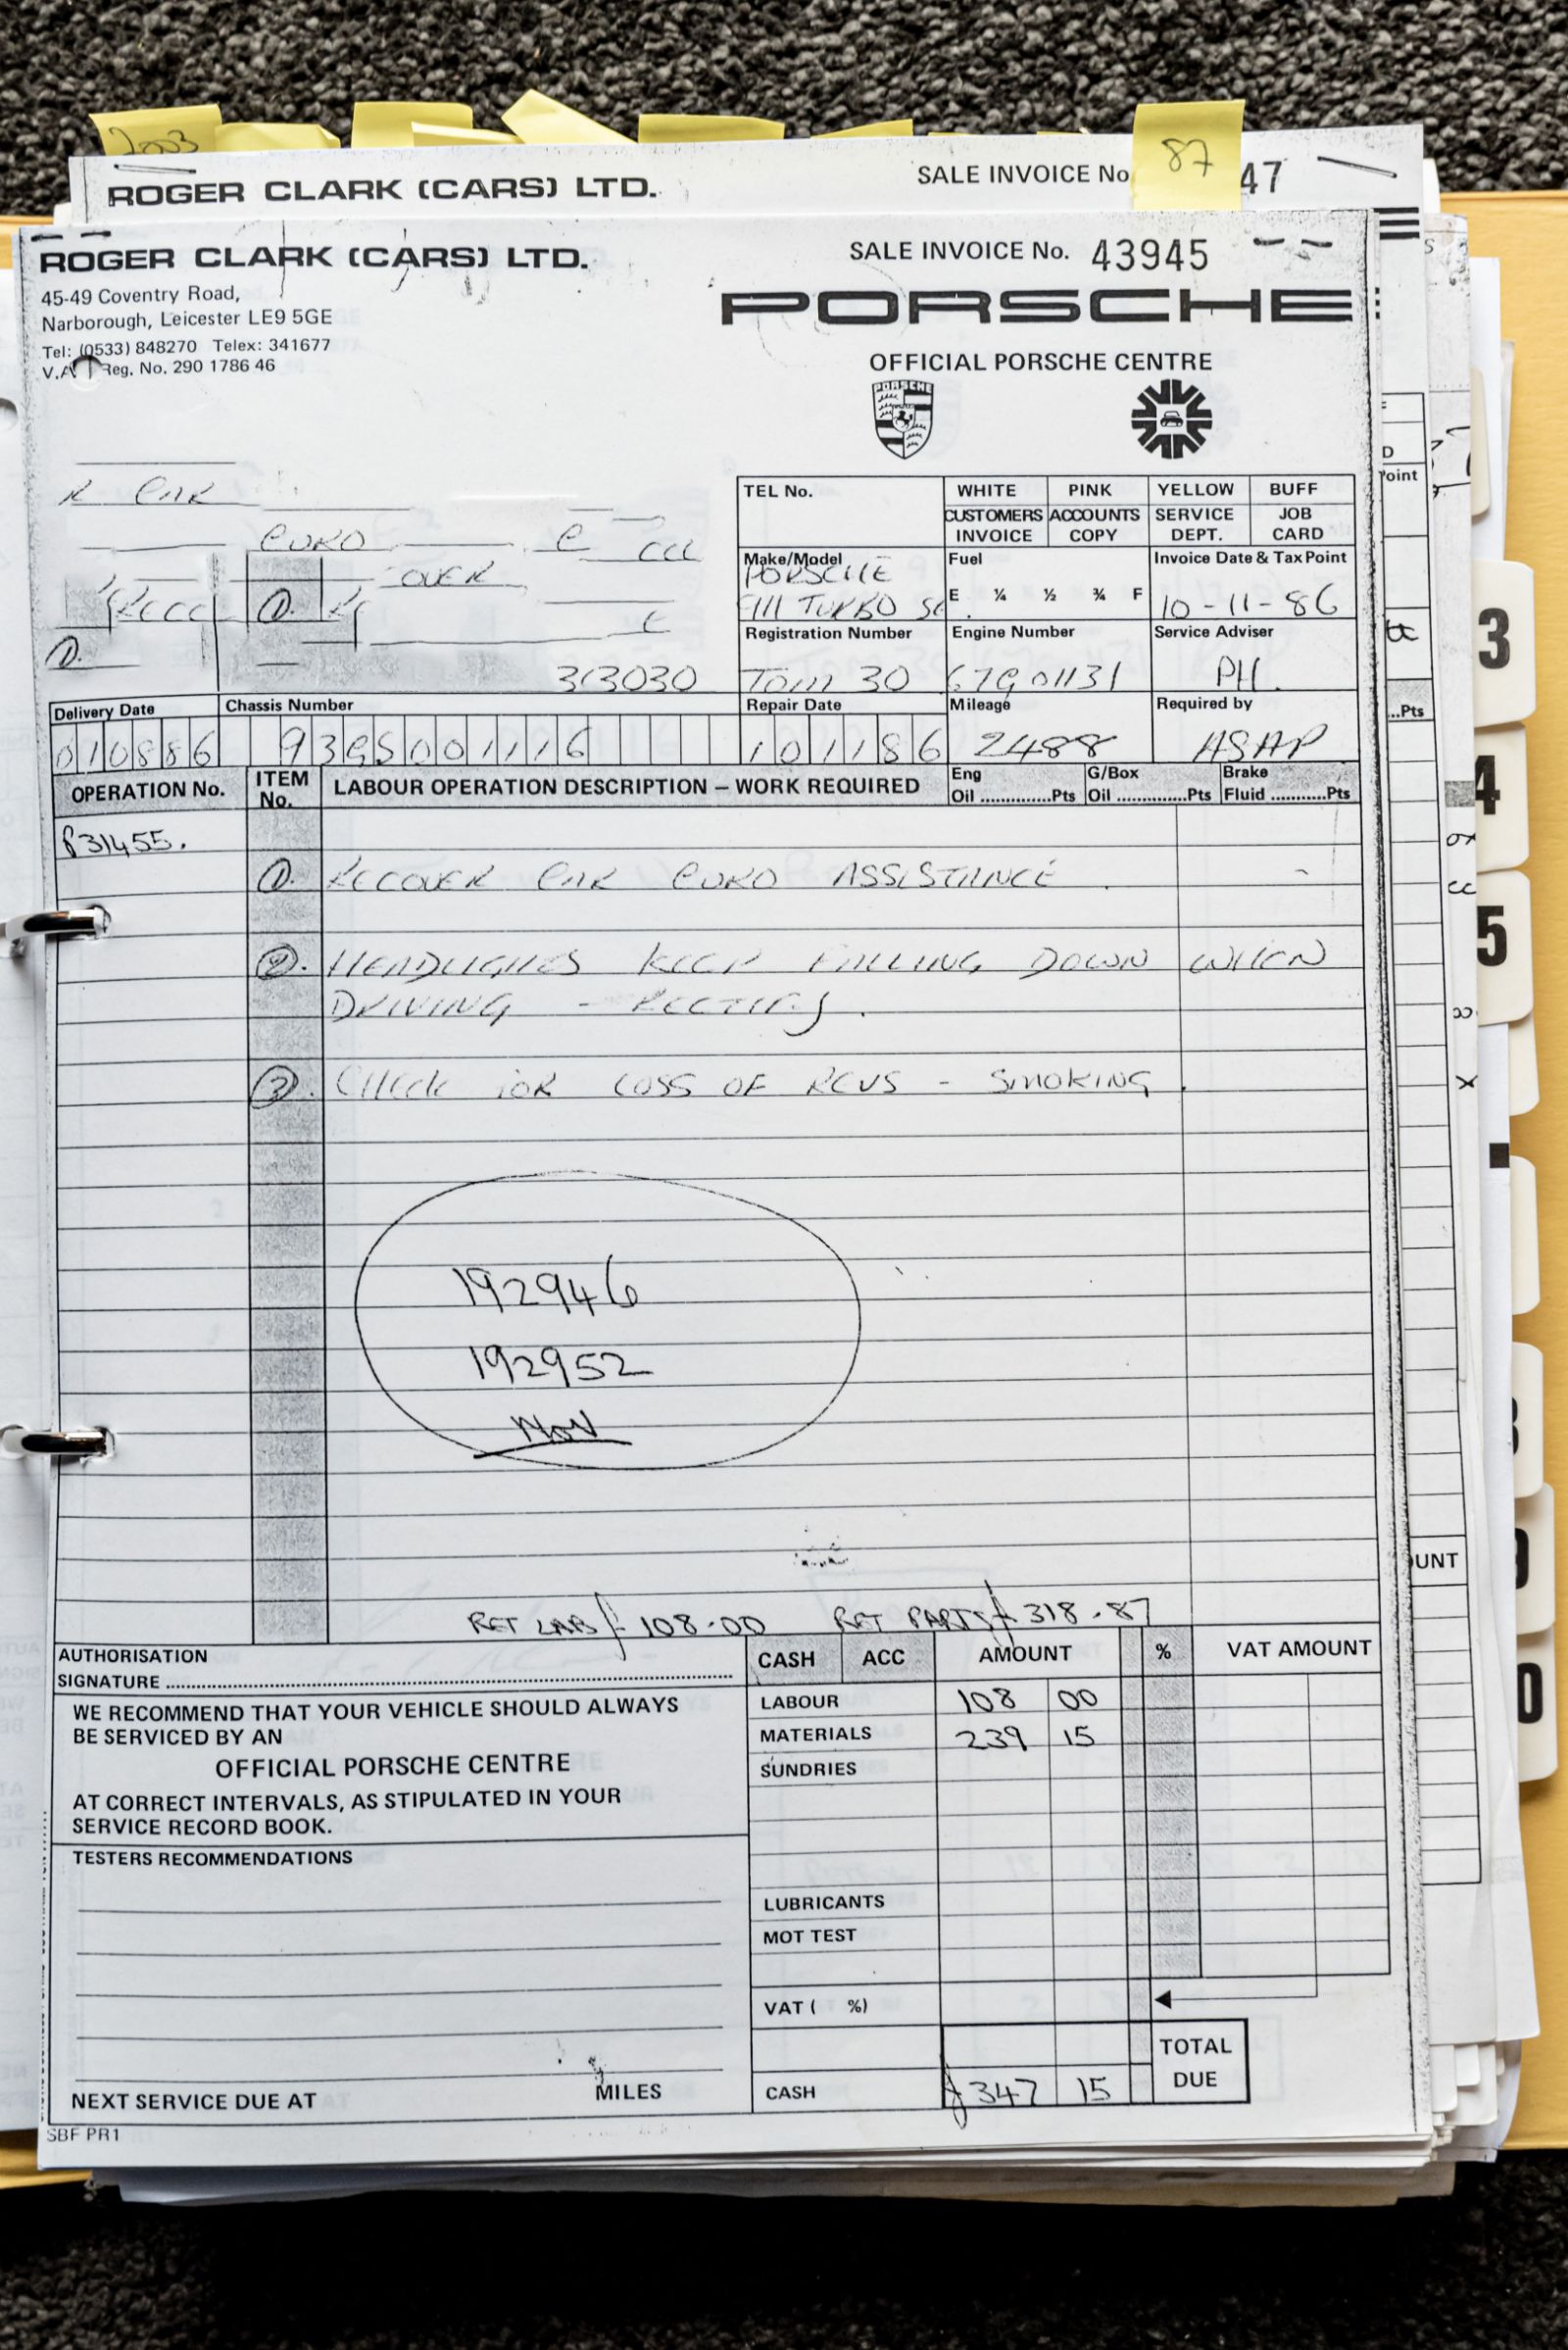 2003
87
ROGER CLARK (CARS) LTD.
SALE INVOICE No
47
ROGER CLARK (CARS) LTD.
SALE INVOICE No. 43945
45-49 Coventry Road,
Narborough, Leicester LE9 5GE
Tel: (0533) 848270 Telex: 341677
V.A Reg. No. 290 1786 46
PORSCHE
OFFICIAL PORSCHE CENTRE
PORSCHE
TEL No.
WHITE PINK YELLOW BUFF
CUSTOMERS INVOICE
ACCOUNTS COPY
SERVICE DEPT.
JOB CARD
CAR
EURO
OVER
313030
Make/Model
PORSCHE
911 TURBO SE
Fuel
E ¼ ½ ¾ F
Invoice Date & Tax Point
10-11-86
Registration Number
TOM 30
Engine Number
67G01131
Service Adviser
PH.
Delivery Date
010886
Chassis Number
93GS001116
Repair Date
101186
Mileage
2488
Required by
ASAP
OPERATION No.
ITEM No.
LABOUR OPERATION DESCRIPTION – WORK REQUIRED
Eng Oil .............Pts
G/Box Oil .............Pts
Brake Fluid ...........Pts
831455.
1. RECOVER CAR EURO ASSISTANCE.
2. HEADLIGHTS KEEP FALLING DOWN WHEN
DRIVING - RECTIFY.
3. CHECK FOR LOSS OF REVS - SMOKING.
192946
192952
NOV
RET LAB £108.00 RET PARTS £318.87
AUTHORISATION
SIGNATURE
CASH ACC AMOUNT % VAT AMOUNT
WE RECOMMEND THAT YOUR VEHICLE SHOULD ALWAYS
BE SERVICED BY AN
OFFICIAL PORSCHE CENTRE
AT CORRECT INTERVALS, AS STIPULATED IN YOUR
SERVICE RECORD BOOK.
LABOUR 108 00
MATERIALS 239 15
SUNDRIES
TESTERS RECOMMENDATIONS
LUBRICANTS
MOT TEST
VAT ( %)
TOTAL DUE
CASH £347 15
NEXT SERVICE DUE AT MILES
SBF PR1
oint
...Pts
UNT
3
4
5